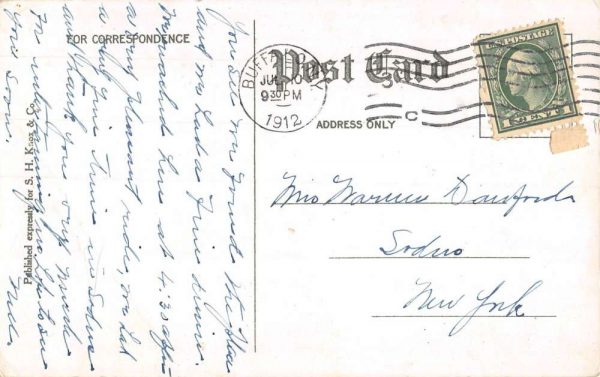 FOR CORRESPONDENCE
Post Card
ADDRESS ONLY
BUFFALO, N.Y.
JUL 10
9 30 PM
1912
C
U.S. POSTAGE
1 CENT 1
Mrs Warren Danforth
Sodus
New York
You see we found the
and we had a fine drive.
We reached here at 4:30 after
a very pleasant ride, we had
a very fine time in Sodus
and thank you very much
for entertaining us
you soon.
Published expressly for S. H. Knox & Co.